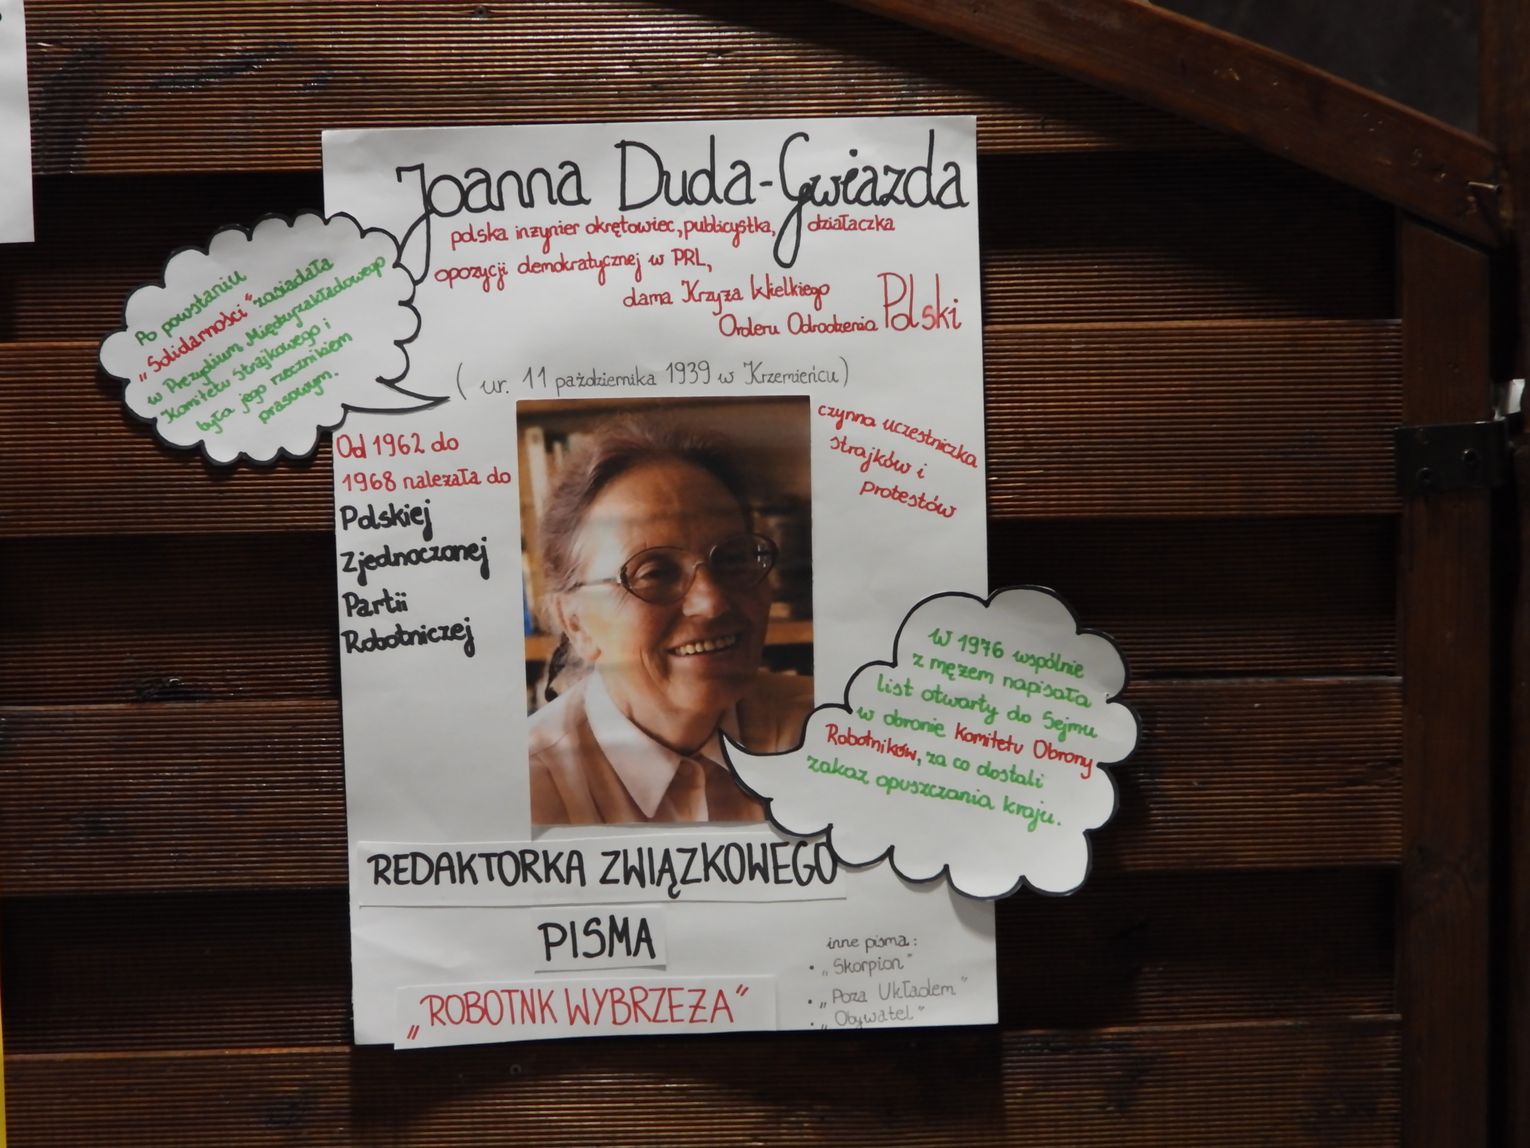 Joanna Duda-Gwiazda
polska inżynier okrętowiec, publicystka, działaczka
opozycji demokratycznej w PRL,
dama Krzyża Wielkiego
Orderu Odrodzenia Polski
Po powstaniu
„Solidarności" zasiadała
w Prezydium Międzyzakładowego
Komitetu Strajkowego i
była jego rzecznikiem
prasowym.
( ur. 11 października 1939 w Krzemieńcu)
Od 1962 do
1968 należała do
Polskiej
Zjednoczonej
Partii
Robotniczej
czynna uczestniczka
strajków i
protestów
W 1976 wspólnie
z mężem napisała
list otwarty do Sejmu
w obronie Komitetu Obrony
Robotników, za co dostali
zakaz opuszczania kraju.
REDAKTORKA ZWIĄZKOWEGO
PISMA
„ROBOTNK WYBRZEŻA"
inne pisma:
• „Skorpion"
• „Poza Układem"
• „Obywatel"